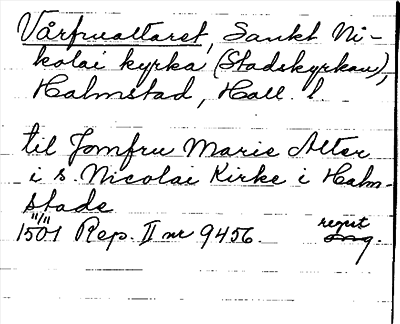 Vårfrualtaret, Sankt Ni-
kolai kyrka (Stadskyrkan),
Halmstad, Hall. l.
til Jomfru Marie Alter
i s. Nicolai Kirke i Halm-
stade
11/11
1501 Rep. II nr 9456. regest